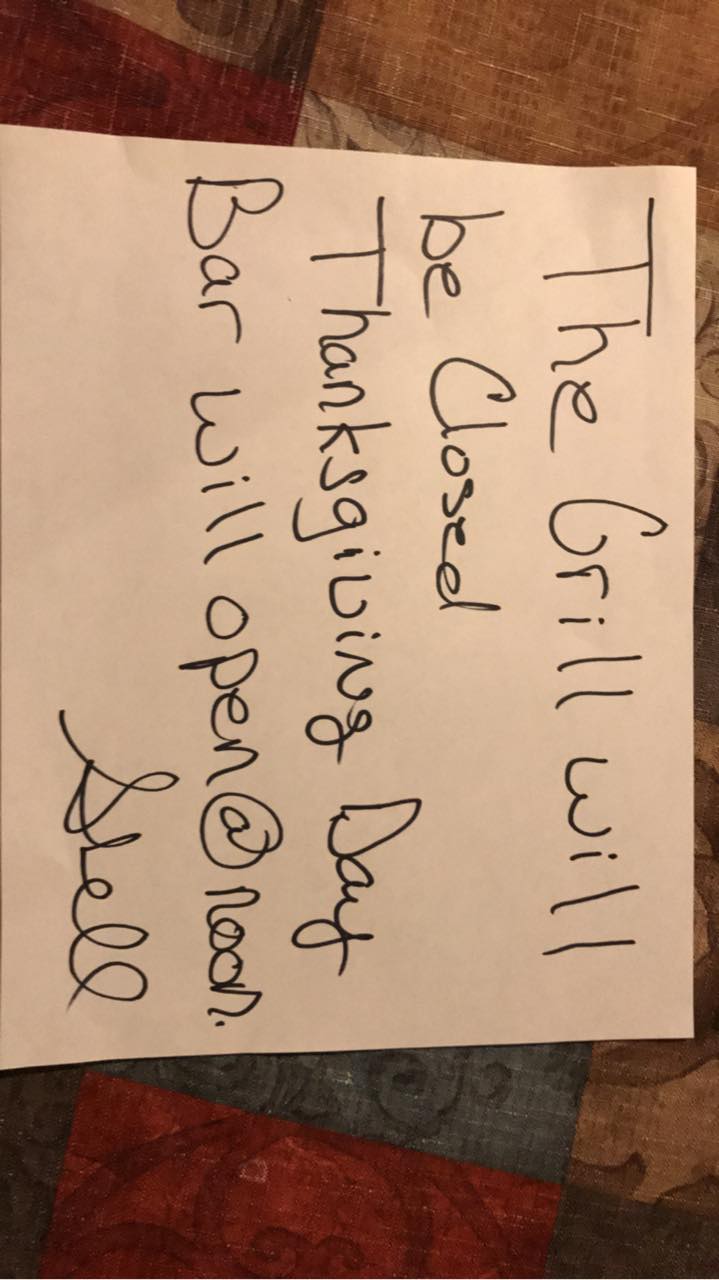 The Grill will
be Closed
Thanksgiving Day
Bar will open @ noon.
Shell